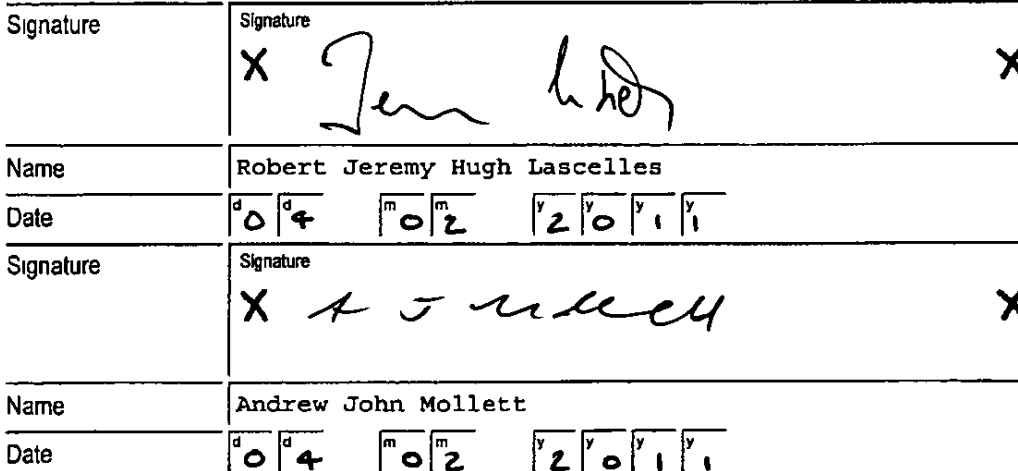 Signature Signature
X X
Name Robert Jeremy Hugh Lascelles
Date d0 d4 m0 m2 y2 y0 y1 y1
Signature Signature
X A J Mollett X
Name Andrew John Mollett
Date d0 d4 m0 m2 y2 y0 y1 y1